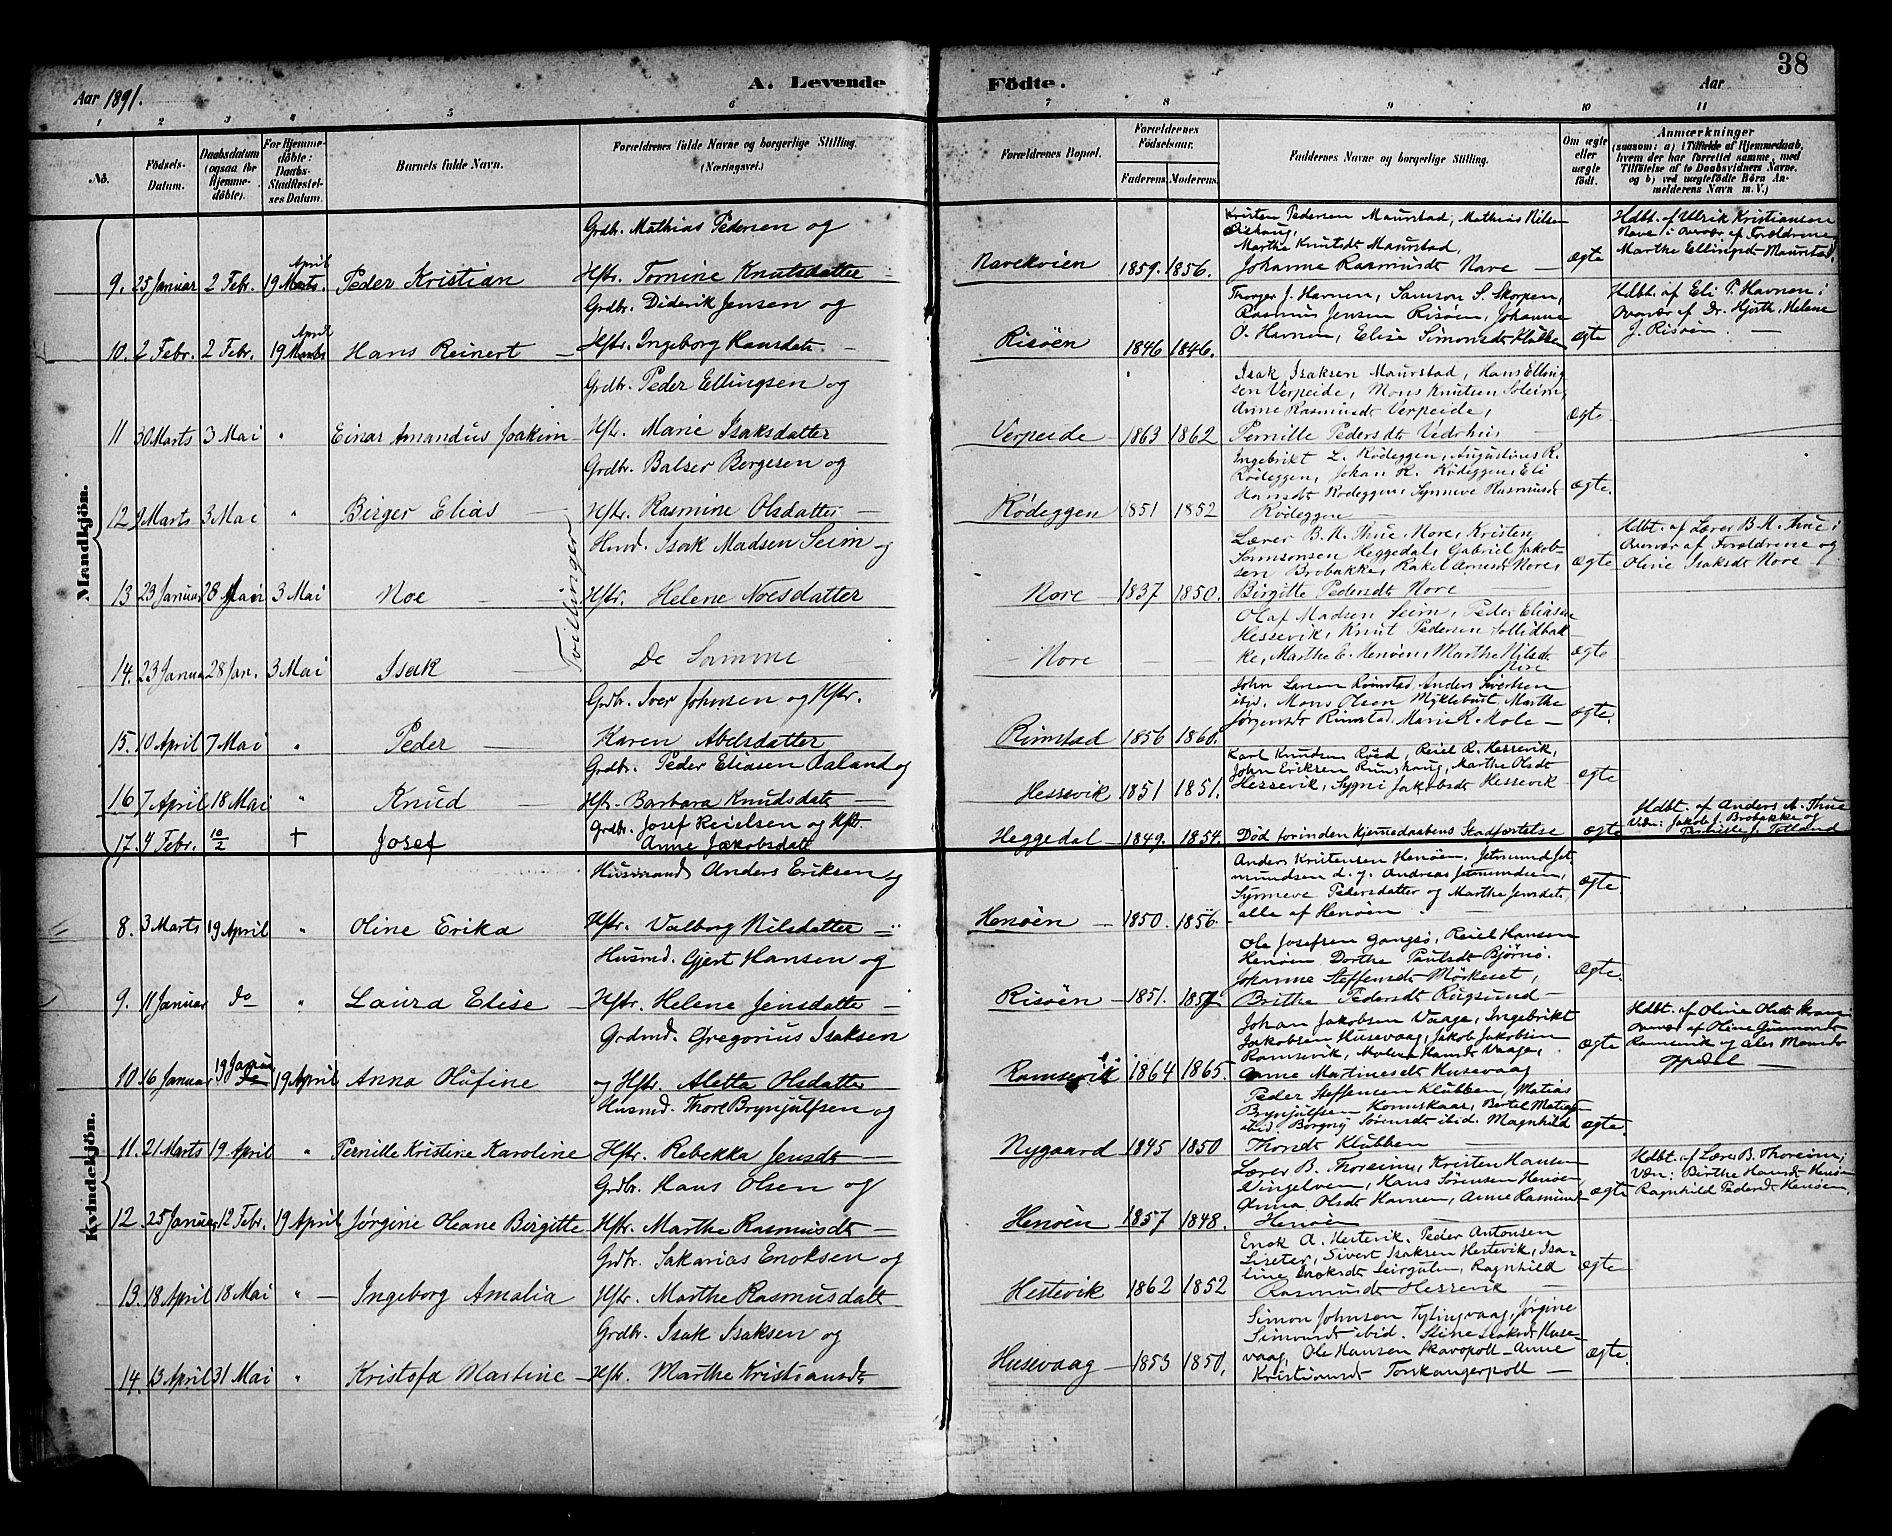 38
Aar 1891. A. Levende Födte. Aar
1 2 3 4 5 6 7 8 9 10 11
No. Födsels-Datum. Daabsdatum (ogsaa for Hjemmedöbte). For Hjemmedöbte: Daabs-Stadfæstelses Datum. Barnets fulde Navn. Forældrenes fulde Navne og borgerlige Stilling. (Næringsvei.) Forældrenes Bopæl. Forældrenes Födselsaar. Faderens. Moderens. Faddernes Navne og borgerlige Stilling. Om ægte eller uægte födt. Anmærkninger (saasom: a) i Tilfælde af Hjemmedaab, hvem der har forrettet samme, med Tilföielse af to Daabsvidners Navne, og b) ved uægtefödte Börn Anmelderens Navn m. V.)
Mandkjön.
Grdbr. Mathias Pedersen og
Kristen Pedersen Maurstad, Mathias Nilsen
Marthe Knutsdt Maurstad,
Hdbt. af Ulrik Kristiansen
Nave i Overvær af Forældrene
Marthe Ellingsdt Maurstad
9. 25 Januar 2 Febr. 19 April Peder Kristian Hstr. Tomine Knutsdatter Navekvien 1859. 1856. Johanne Rasmusdt Nave — ægte
Grdbr. Diderik Jensen og
Thorger J. Havnen, Samson S. Skorpen,
Rasmus Jensen Risöen, Johanne
Hdbt. af Eli P. Havnen i
Overvær af Dr. Hjorth, Helene
J. Risöen —
10. 2 Febr. 2 Febr. 19 April Hans Reinert — Hstr. Ingeborg Hansdatt. — Risöen 1846 1846. O. Havnen, Elise Simonsdt Klubben ægte
Grdbr. Peder Ellingsen og
Isak Isaksen Maurstad, Hans Elling
sen Verpeide, Mons Knutsen Soleim,
Anne Rasmusdt Verpeide,
11 30 Marts 3 Mai " Einar Amandus Joakim — Hstr. Marie Isaksdatter Verpeide 1863 1862 Pernille Pedersdt ægte.
Grdbr. Balser Børgesen og
Ingebrikt L. Rødeggen, Augustinus R.
Rødeggen, Johan R. Rødeggen, Eli
Hansdt Rødeggen, Synneve Rasmusdt
12 9 Marts 3 Mai " Birger Elias — Hstr. Rasmine Olsdatter — Rødeggen 1851 1852 Rødeggen — ægte.
Tvillinger
Husmd. Isak Madsen Seim og
Lærer B. M. Thue, Nore, Kristen
Samsonsen Heggedal, Gabriel Jakob-
sen Brobakke, Rakel Arnesdt Nore,
Hdbt. af Lærer B. M. Thue i
Overvær af Forældrene og
Oline Isaksdt Nore
13 23 Januar 28 Jan 3 Mai Noe — Hstr. Helene Noesdatter Nore — 1837 1850. Birgitte Pedersdt Nore ægte
Olaf Madsen Seim, Peder Eliassen
Hessevik, Knut Pedersen Sollidbak-
14. 23 Januar 28 Jan. 3 Mai Isak — De Samme — Nore — — — ke, Marthe E. Henöen, Marthe Nilsdt. Nore ægte
Grdbr. Iver Johnsen og Hstr.
John Larsen Rimstad, Anders Sivertsen
ibid, Mons Olsen Myklebust, Marthe
Jørgensdt Rimstad, Marie R. Mole —
15. 10 April 7 Mai " Peder — Karen Abelsdatter Rimstad 1856 1860. ægte.
Grdbr. Peder Eliasen Aaland og
Karl Knudsen Røed, Reiel R. Hessevik,
John Eriksen Rundhaug, Marthe Olsdt
16 7 April 18 Mai " Knud — Hstr. Barbara Knudsdatt. — Hessevik 1851 1851. Hessevik, Sygni Jakobsdt Hessevik ægte
Grdbr. Josef Reielsen og Hstr.
Hdbt. af Anders A. Thue
Vdn: Jakob J. Brobakke og
17. 9 Febr. 10/2 + Josef Anne Jakobsdatt Heggedal — 1849. 1854. Död forinden Hjemmedaabens Stadfestelse ægte Totland
Kvindekjön.
Husmand Anders Eriksen og
Anders Kristensen Henöen, Jetmund Jet-
mundsen d. y. Andreas Jetmundsen,
Synneve Pedersdatter og Marthe Jensdt.
8. 3 Marts 19 April " Oline Erika Hstr. Valborg Nilsdatter — Henöen — 1850. 1856 alle af Henöen — ægte.
Husmd. Gjert Hansen og
Ole Josefsen Gangsö, Reiel Hansen
Henöen Dorthe Paulsdt Björnö.
Johanne Steffensdt Mörkeset,
9. 11 Januar do " Laura Elise — Hstr. Helene Jensdatter — Risöen — 1851. 1857 Brithe Pedersdt Rugsund — ægte.
Grdmd. Gregorius Isaksen
Johan Jakobsen Vaage, Ingebrikt
Jakobsen Husevaag, Jakob Jakobsen
Ramsevik, Malene Hansdt Vaage,
Hdbt. af Oline Olsdt
Overvær af Oline Gunnarsdt
Ramsevik og Ales Monsdt
Oppedal —
10. 16 Januar 19 Januar 19 April Anna Olufine og Hstr. Aletta Olsdatter Ramsevik 1864 1865. Anne Martinesdt Husevaag ægte
Husmd. Thore Brynjulfsen og
Peder Steffensen Klubben, Matias
Brynjulfsen Hennskaar, Bertel Matias-
ibid. Børgny Sørensdt ibid. Magnhild
11. 21 Marts 19 April " Pernille Kristine Karoline Hstr. Rebekka Jensdt — Nygaard 1845 1850 Thorsdt Klubben — ægte.
Grdbr. Hans Olsen og
Lærer B. Thoreim, Kristen Hansen
Vingelven, Hans Sørensen Henöen,
Anna Olsdt Havnen, Anne Rasmusdt
Hdbt. af Lærer B. Thoreim;
Vdn: Birthe Hansdt Henöen
Ragnhild Pedersdt Henöen.
12. 25 Januar 12 Febr. 19 April Jørgine Oleane Birgitte Hstr. Marthe Rasmusdt — Henöen — 1857 1848. Henöen — ægte
Grdbr. Sakarias Enoksen og
Enok A. Hestevik. Peder Antonsen
Liseter, Sivert Isaksen Hestevik, Isa-
line Enoksdt Leirgulen, Ragnhild
13. 18 April 18 Mai " — Ingeborg Amalia Hstr. Marthe Rasmusdatt Hestevik 1862 1852 Rasmusdt Hessevik — ægte
Grdbr. Isak Isaksen og
Simon Johnsen Tytingvaag, Jørgine
Simonsdt ibid. Stine Isaksdt Huse-
vaag, Ole Hansen Skavopoll — Anne
14. 13 April 31 Mai " Kristofa Martine — Hstr. Marthe Kristiansdt Husevaag — 1853 1850. Kristiansdt Torskangerpoll — ægte.